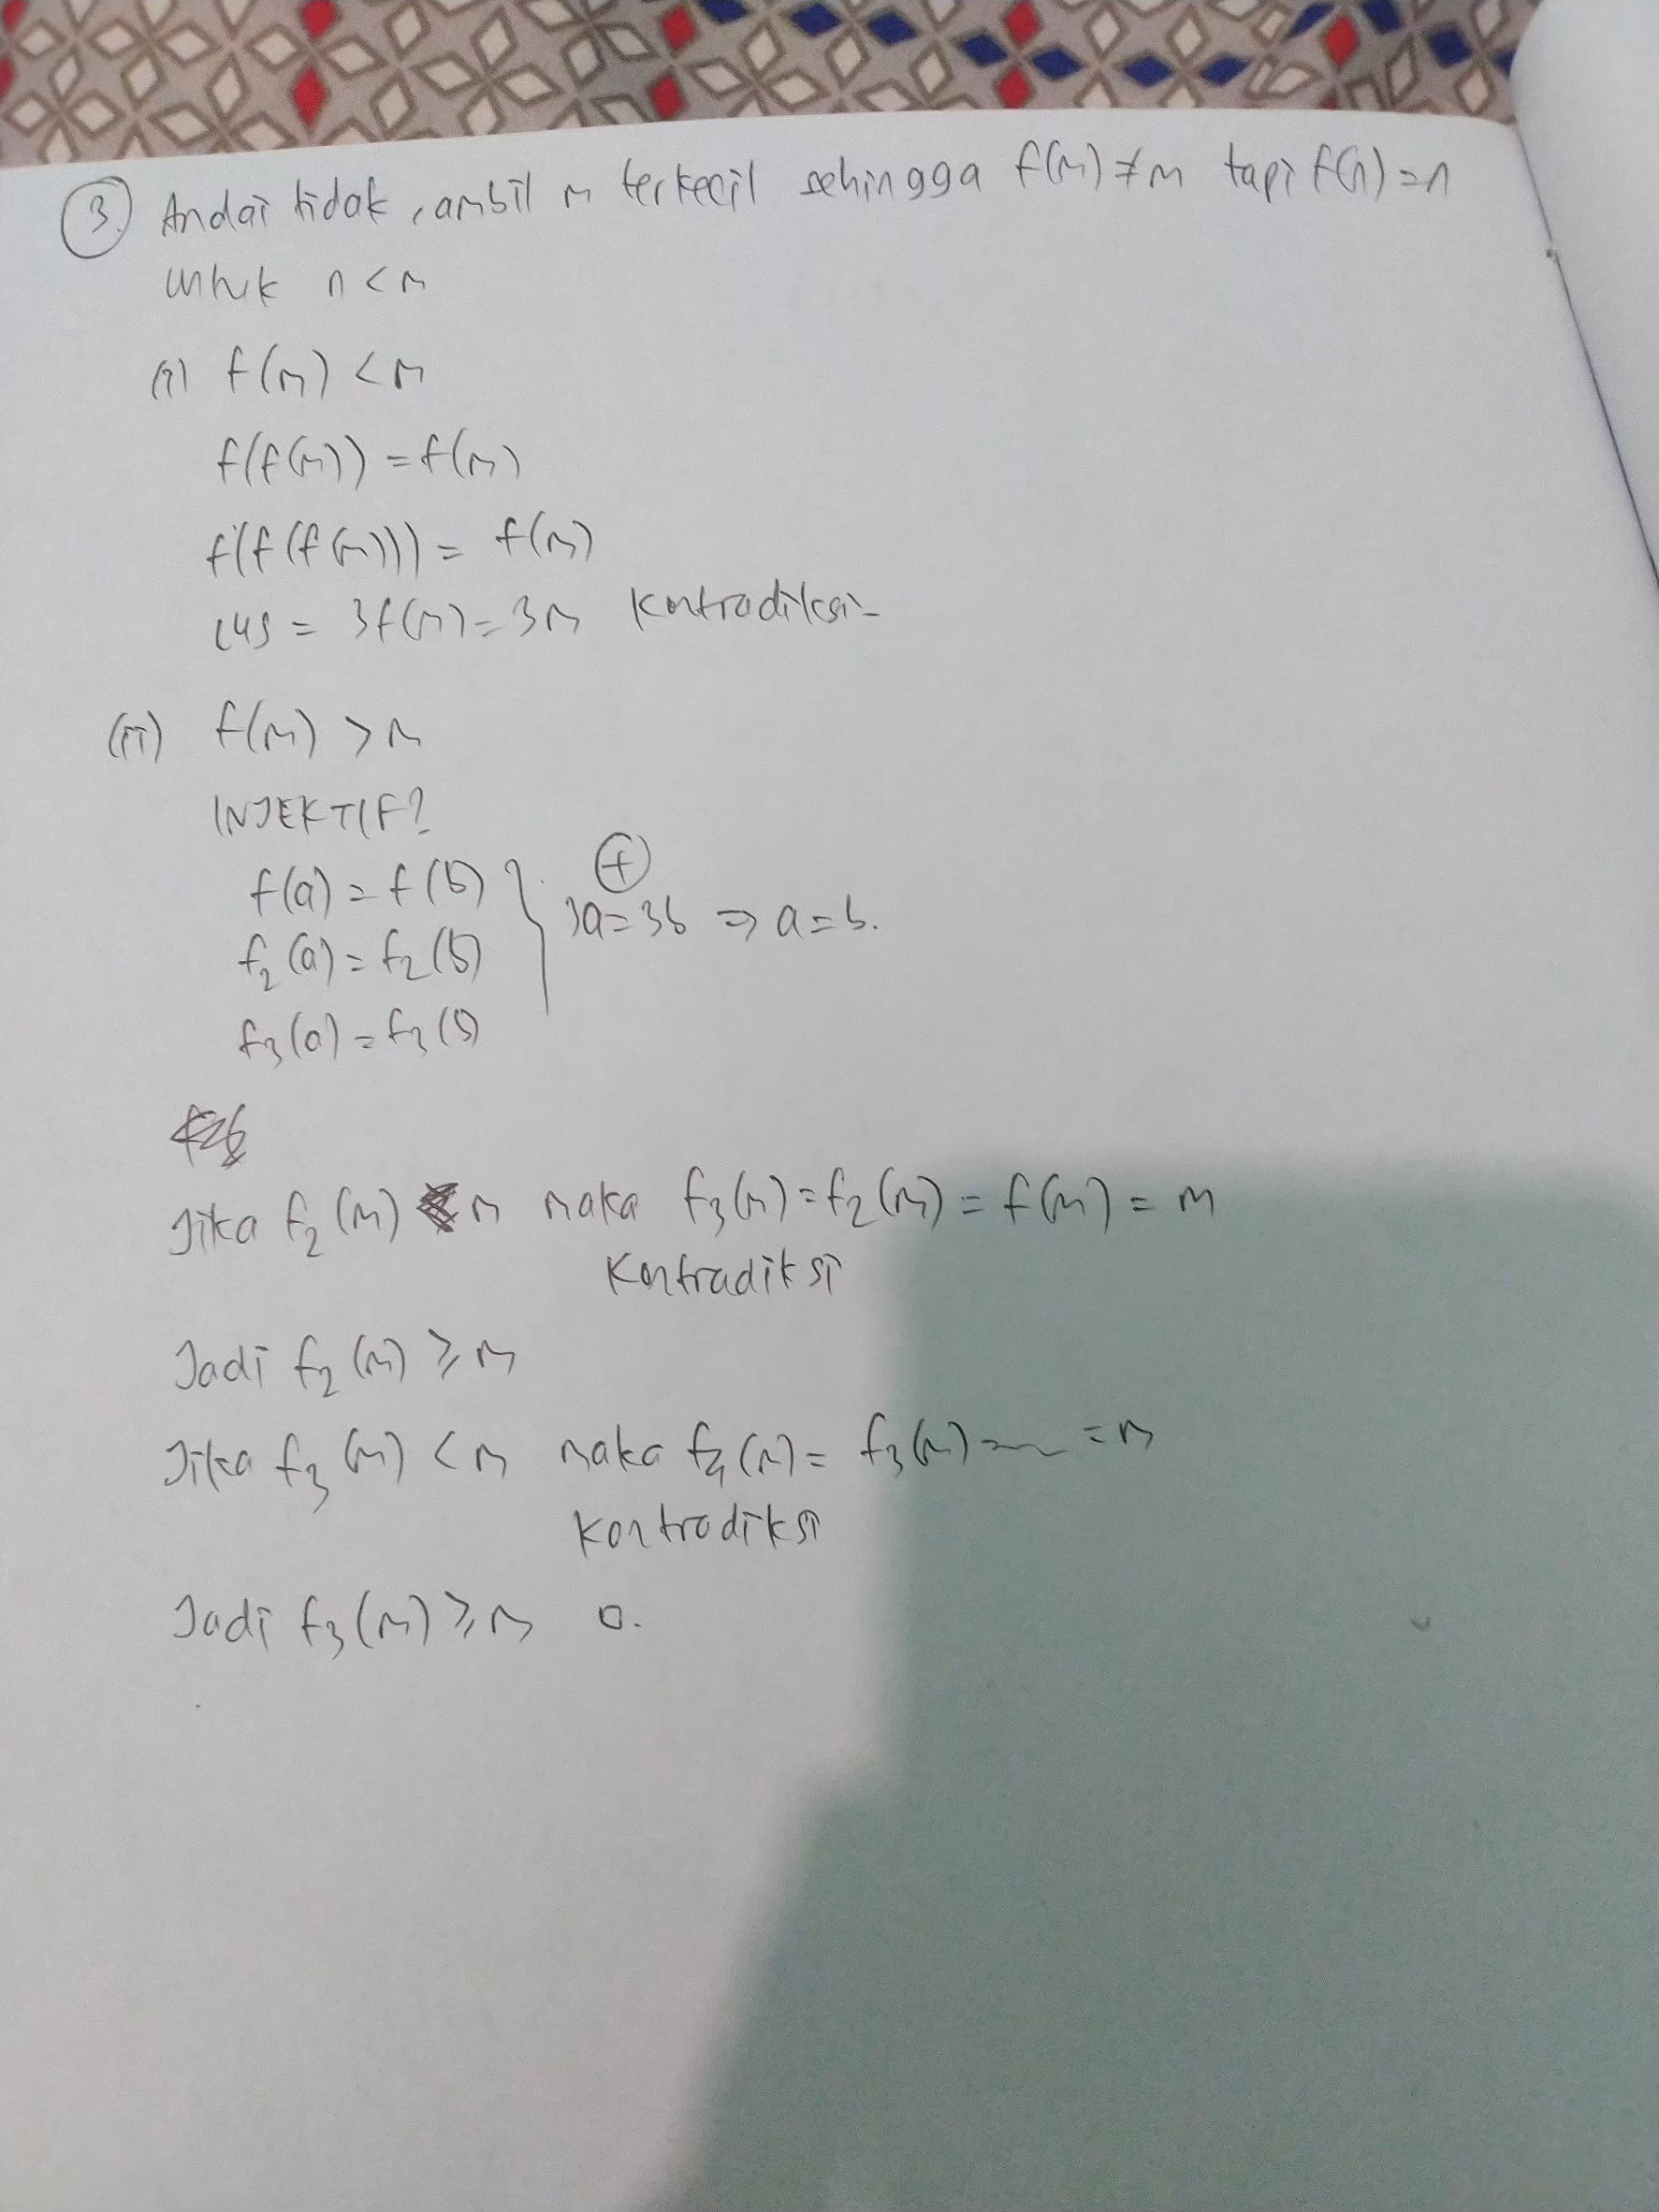 3. Andai tidak, ambil m terkecil sehingga f(m) ≠ m tapi f(n) = n
untuk n < m
(i) f(m) < m
f(f(m)) = f(m)
f(f(f(m))) = f(m)
LHS = 3f(m) = 3m Kontradiksi
(ii) f(m) > m
INJEKTIF?
f(a) = f(b)
f₂(a) = f₂(b)
f₃(a) = f₃(b)
(+)
3a = 3b ⇒ a = b.
Jika f₂(m) < m maka f₃(m) = f₂(m) = f(m) = m
Kontradiksi
Jadi f₂(m) ≥ m
Jika f₃(m) < m maka f₄(m) = f₃(m) = ... = m
Kontradiksi
Jadi f₃(m) ≥ m □.